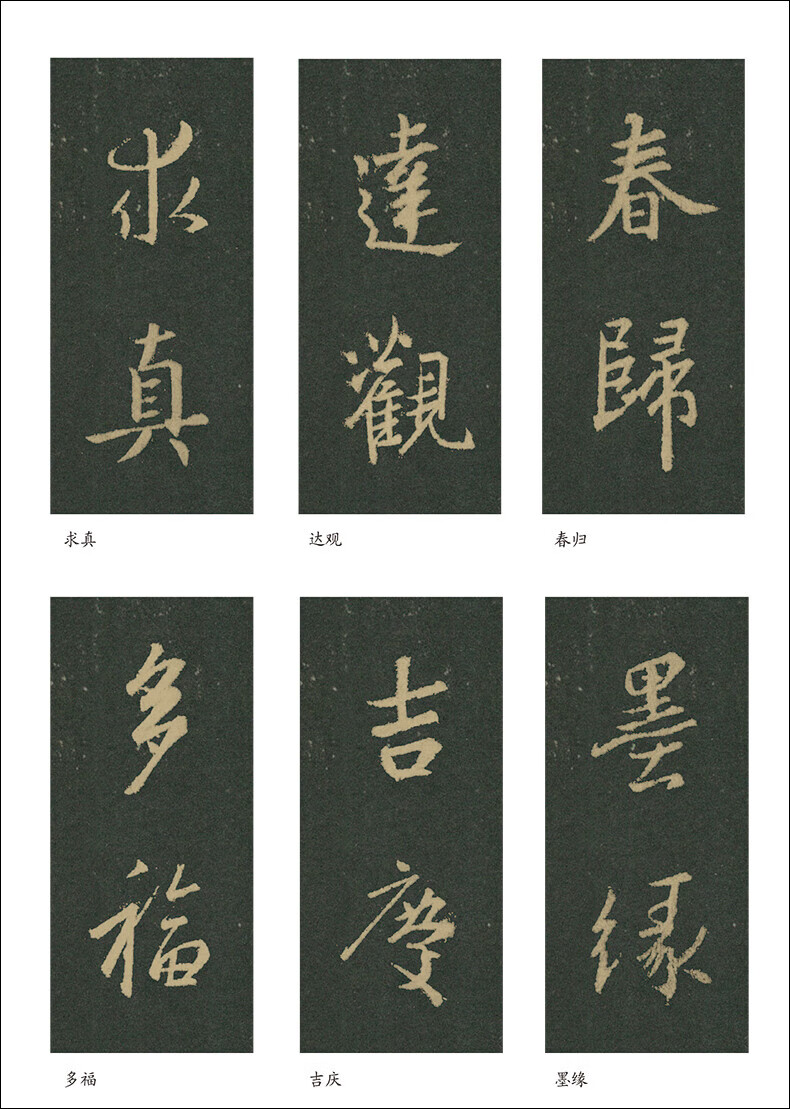 求真
達觀
春歸
求真
达观
春归
多福
吉慶
墨缘
多福
吉庆
墨缘